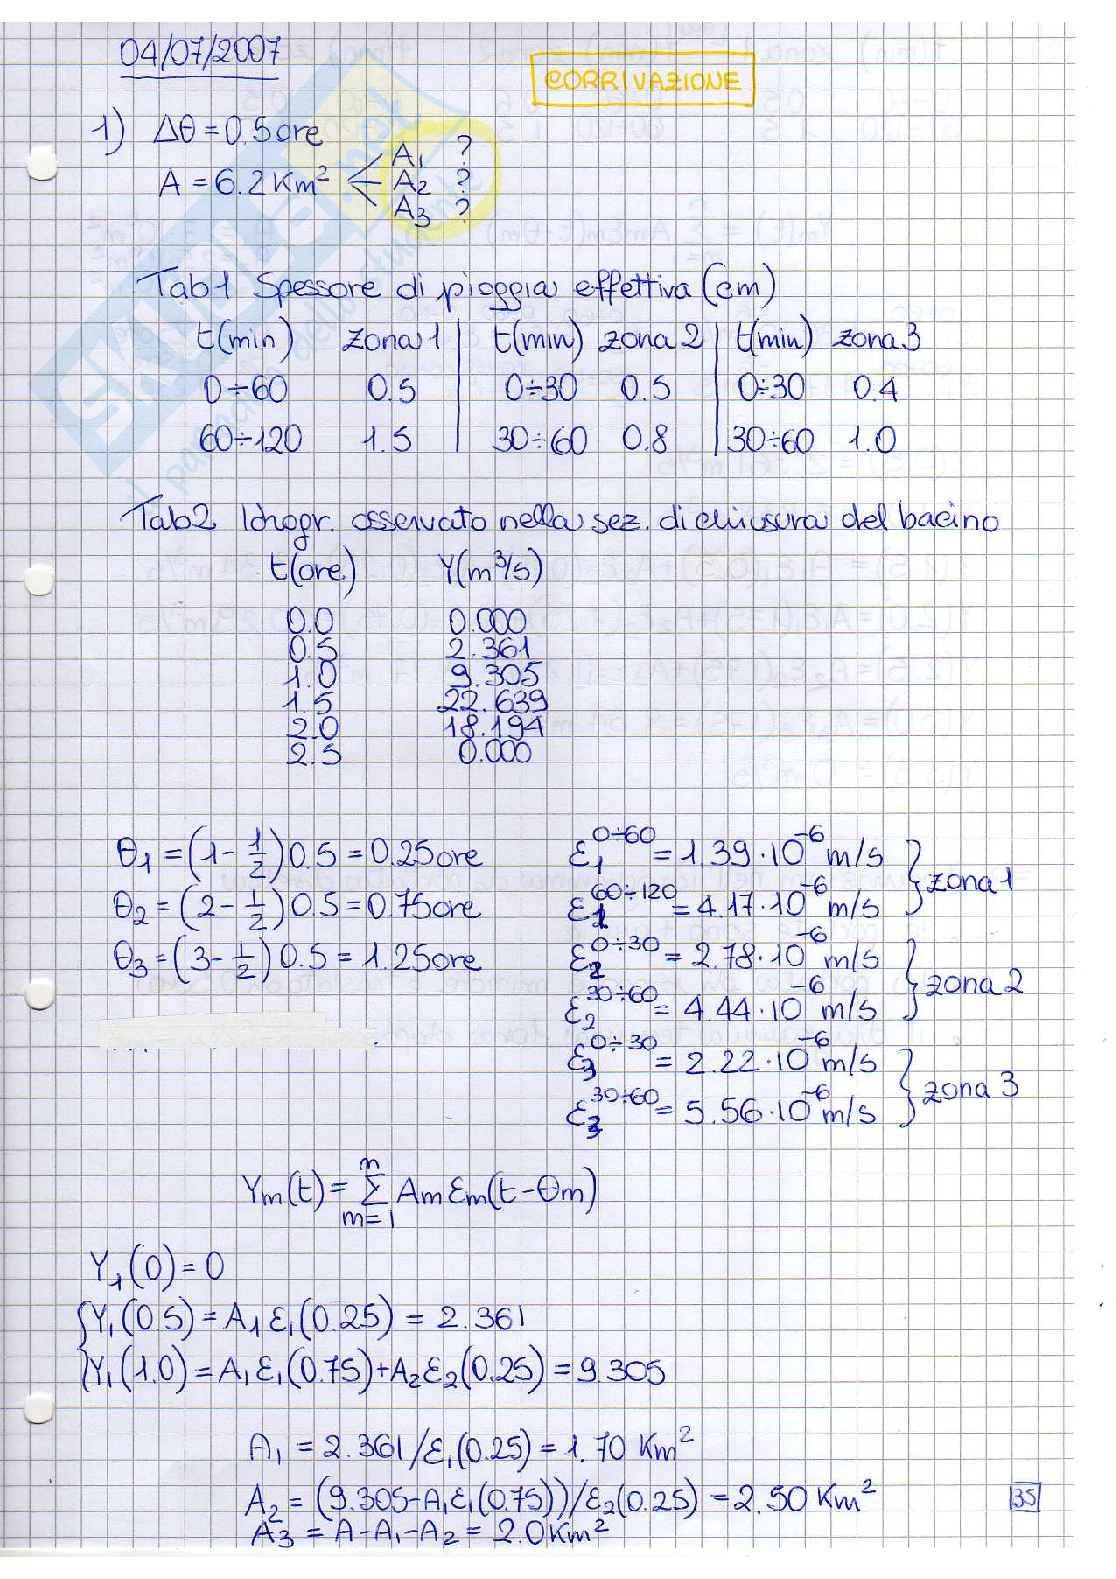 04/07/2007
CORRIVAZIONE
1) Δθ = 0.5 ore
A = 6.2 Km² A₁ ? A₂ ? A₃ ?
Tab1 Spessore di pioggia effettiva (cm)
t(min) zona 1 | t(min) zona 2 | t(min) zona 3
0÷60 0.5 | 0÷30 0.5 | 0÷30 0.4
60÷120 1.5 | 30÷60 0.8 | 30÷60 1.0
Tab2 Idrogr. osservato nella sez. di chiusura del bacino
t(ore) Y(m³/s)
0.0 0.000
0.5 2.361
1.0 9.305
1.5 22.639
2.0 18.194
2.5 0.000
θ₁ = (1 - 1/2) 0.5 = 0.25 ore
θ₂ = (2 - 1/2) 0.5 = 0.75 ore
θ₃ = (3 - 1/2) 0.5 = 1.25 ore
ε₁^0÷60 = 1.39·10⁻⁶ m/s
ε₁^60÷120 = 4.17·10⁻⁶ m/s } zona 1
ε₂^0÷30 = 2.78·10⁻⁶ m/s
ε₂^30÷60 = 4.44·10⁻⁶ m/s } zona 2
ε₃^0÷30 = 2.22·10⁻⁶ m/s
ε₃^30÷60 = 5.56·10⁻⁶ m/s } zona 3
Ym(t) = Σ_{m=1}^{n} Am εm(t-θm)
Y₁(0) = 0
Y₁(0.5) = A₁ε₁(0.25) = 2.361
Y₁(1.0) = A₁ε₁(0.75)+A₂ε₂(0.25) = 9.305
A₁ = 2.361/ε₁(0.25) = 1.70 Km²
A₂ = (9.305-A₁ε₁(0.75))/ε₂(0.25) = 2.50 Km²
A₃ = A-A₁-A₂ = 2.0 Km²
35